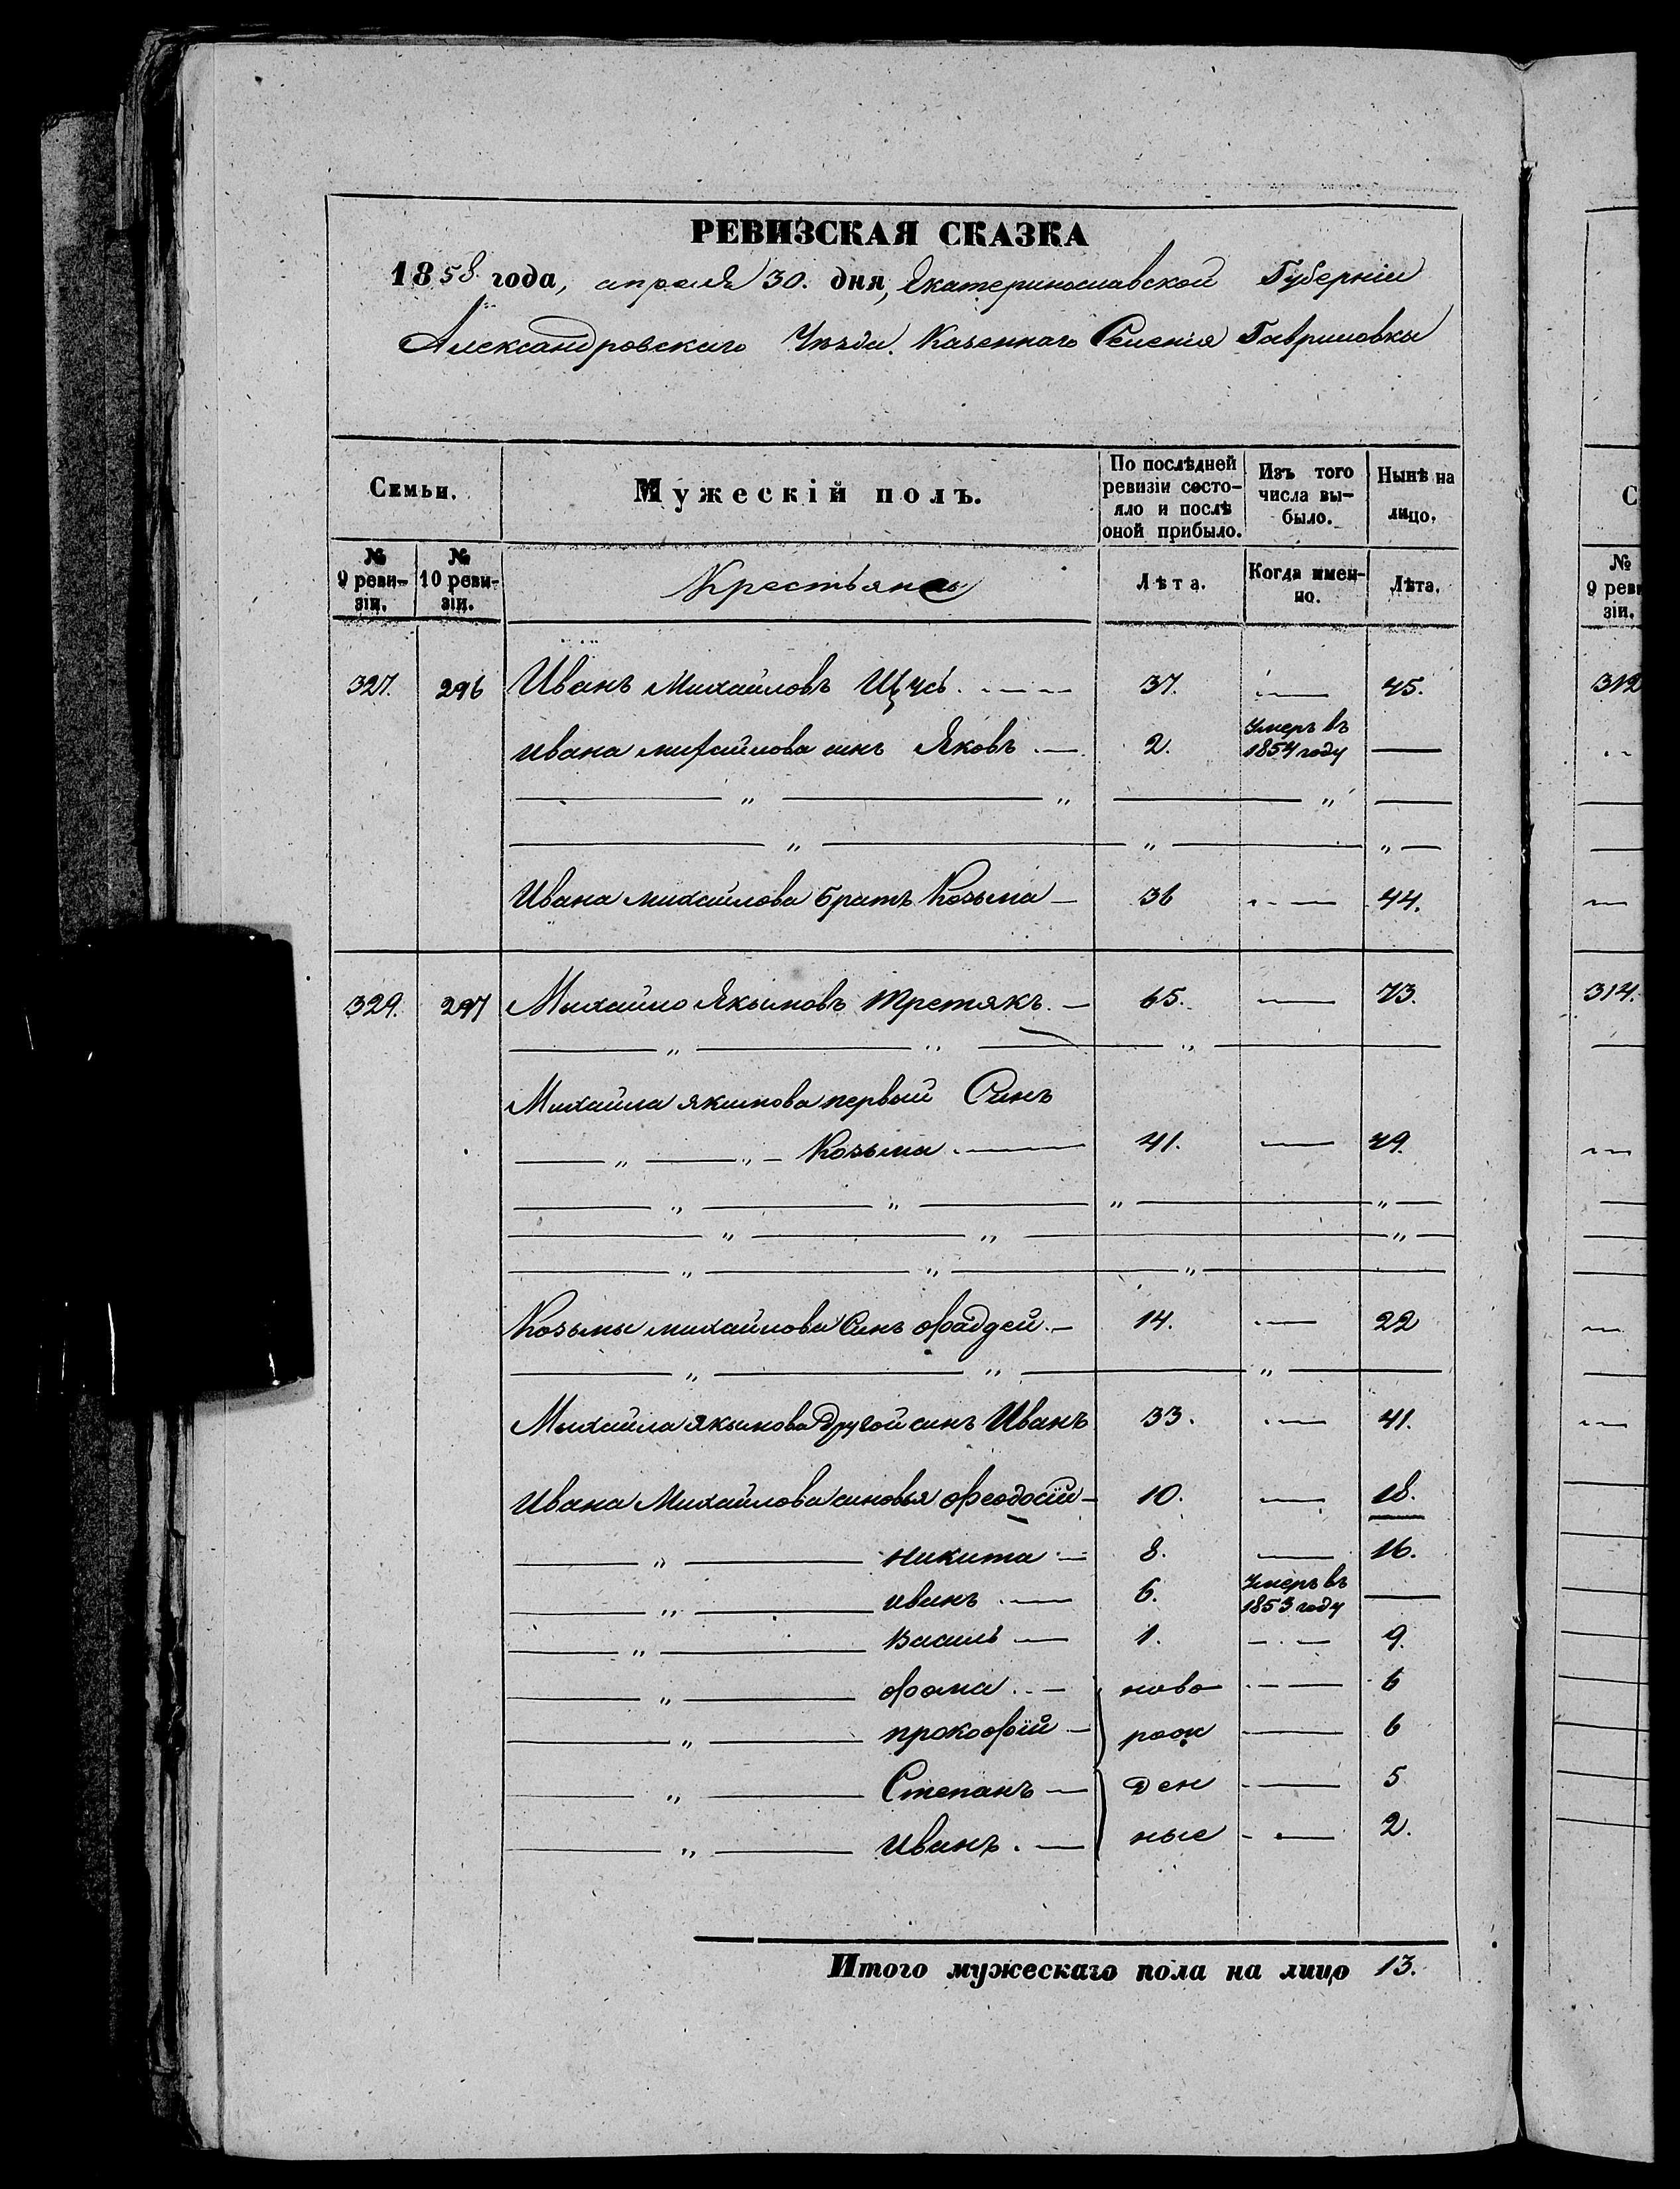 РЕВИЗСКАЯ СКАЗКА
1858 года, апреля 30. дня, Екатеринославской Губерніи
Александровскаго Уѣзда. Казеннаго Селенія Гавриловки
Семьи. Мужескій полъ. По послѣдней ревизіи состо- яло и послѣ оной прибыло. Изъ того числа вы- было. Нынѣ на лицо.
№ 9 реви- зіи. № 10 реви- зіи. Крестьяне Лѣта. Когда имен- но. Лѣта.
327. 296 Иванъ Михайловъ Щусь. 37. — 45.
Ивана михайлова синъ Яковъ — 2. Умеръ въ 1854 году —
Ивана михайлова братъ Козьма — 36 — 44.
329. 297 Михайло Якимовъ Третякъ. — 65. — 73.
Михайла якимова первый Синъ
— „ — „ — Козьма. — 41. — 49.
Козьмы михайлова Синъ фаддей. — 14. — 22
Михайла якимова другой синъ Иванъ 33. — 41.
Ивана Михайлова синовья феодосій — 10. — 18.
— „ — никита — 8. — 16.
— „ — иванъ — 6. Умеръ въ 1853 году —
— „ — Василь — 1. — 9.
— „ — фома — ново — 6
— „ — прокофій — рож — 6
— „ — Степанъ — ден — 5
— „ — Иванъ. — ные — 2.
Итого мужескаго пола на лицо 13.
С
№ 9 реви зіи.
312
314.